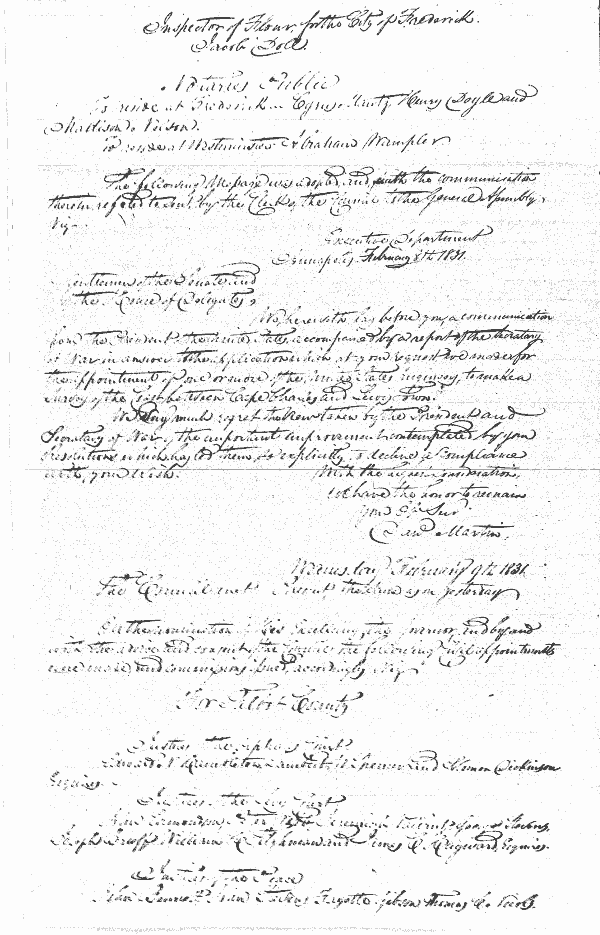 Inspector of Flour, for the City of Frederick.
Jacob Doll.
Notaries Public
To reside at Frederick Henry Doyle and
To reside at Westminster Abraham Wampler
The following Message was adopted, and, with the communication
therein refered to sent by the Clerk of the Council to the General Assembly,
Viz-
Executive Department
Annapolis, February 8th 1831.
Gentlemen of the Senate and
of the House of Delegates,
We herewith lay before you, a communication
from the President of the United States, accompanied by a report of the Secretary
of War in answer to the application which, at your request we made for
the appointment of one or more of the United States Engineers, to make a
Survey of the between Cape Charles and Lewis Town.
We very much regret the view taken by the President and
Secretary of War, of the important improvement contemplated by your
resolutions which has led them, so explicitly, to decline a compliance
with your wish.
With the highest consideration,
we have the honor to remain
your
Martin.
Wednesday February 9th 1831.
The Council met Present the same as on yesterday
On the nomination of His Excellency the Governor, and by and
with the advice and consent of the Council the following Civil appointments
were made, and commissions issued, accordingly Viz-
For Talbot County
Justices of the Orphans Court
Edward N. Hambleton, Lambert W. Spencer and Solomon Dickinson
Esquires.
Justices of the Levy Court
George Stevens,
Joseph William H. Tilghman and James Esquires.
Justices of the Peace
John Bennett John Stevens Fayette Gibson Thomas C.